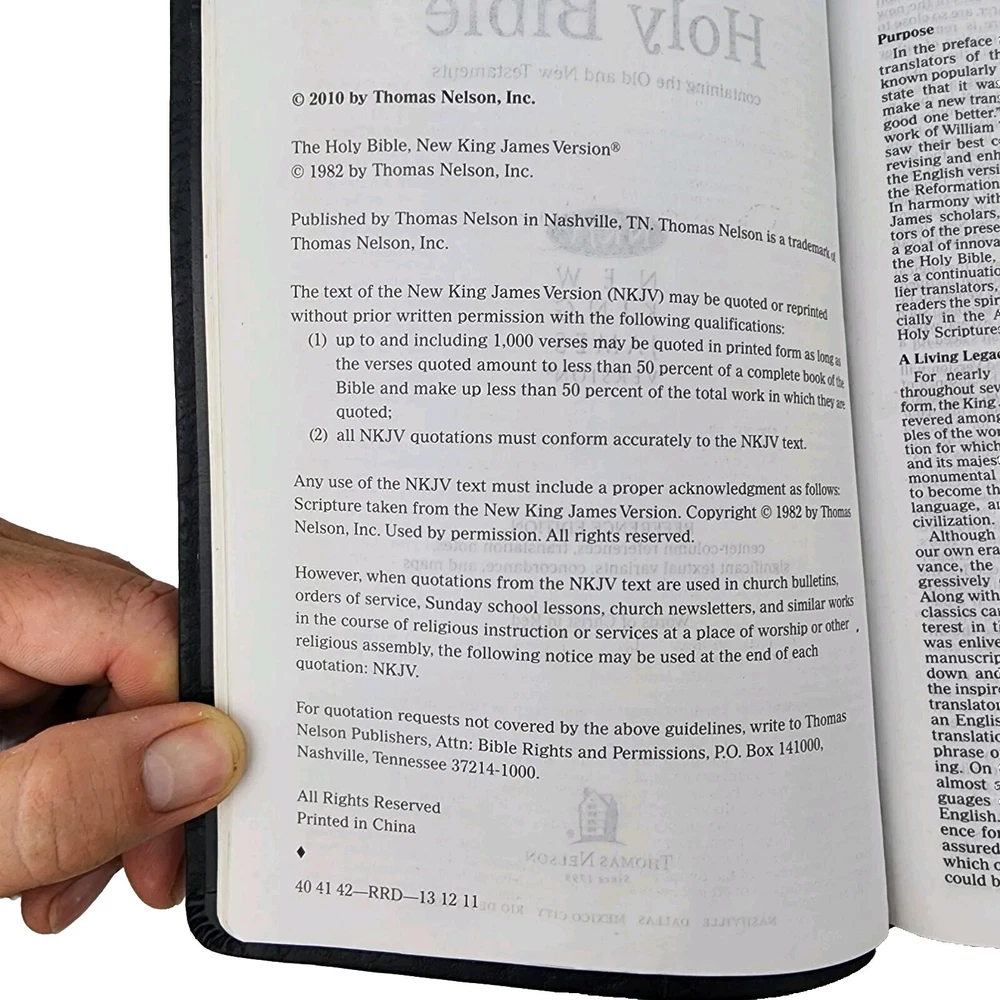 © 2010 by Thomas Nelson, Inc.
The Holy Bible, New King James Version®
© 1982 by Thomas Nelson, Inc.
Published by Thomas Nelson in Nashville, TN. Thomas Nelson is a trademark of
Thomas Nelson, Inc.
The text of the New King James Version (NKJV) may be quoted or reprinted
without prior written permission with the following qualifications:
(1) up to and including 1,000 verses may be quoted in printed form as long as
the verses quoted amount to less than 50 percent of a complete book of the
Bible and make up less than 50 percent of the total work in which they are
quoted;
(2) all NKJV quotations must conform accurately to the NKJV text.
Any use of the NKJV text must include a proper acknowledgment as follows:
Scripture taken from the New King James Version. Copyright © 1982 by Thomas
Nelson, Inc. Used by permission. All rights reserved.
However, when quotations from the NKJV text are used in church bulletins,
orders of service, Sunday school lessons, church newsletters, and similar works
in the course of religious instruction or services at a place of worship or other
religious assembly, the following notice may be used at the end of each
quotation: NKJV.
For quotation requests not covered by the above guidelines, write to Thomas
Nelson Publishers, Attn: Bible Rights and Permissions, P.O. Box 141000,
Nashville, Tennessee 37214-1000.
All Rights Reserved
Printed in China
♦
40 41 42—RRD—13 12 11
Purpose
In the preface
translators of
known popularly
state that it was
make a new
good one better."
work of William
saw their best
revising and
the English
the Reformation
In harmony with
James scholars,
tors of the
a goal of
the Holy Bible,
as a
lier translators,
readers the
cially in the
Holy
A Living
For nearly
throughout
form, the King
revered among
ples of the
tion for which
and its
monumental
to become the
language,
civilization.
Although
our own
vance, the
gressively
Along with
classics
terest in
was
down and
the
an
phrase
ing. On
almost
guages
English.
ence
assured
which
could